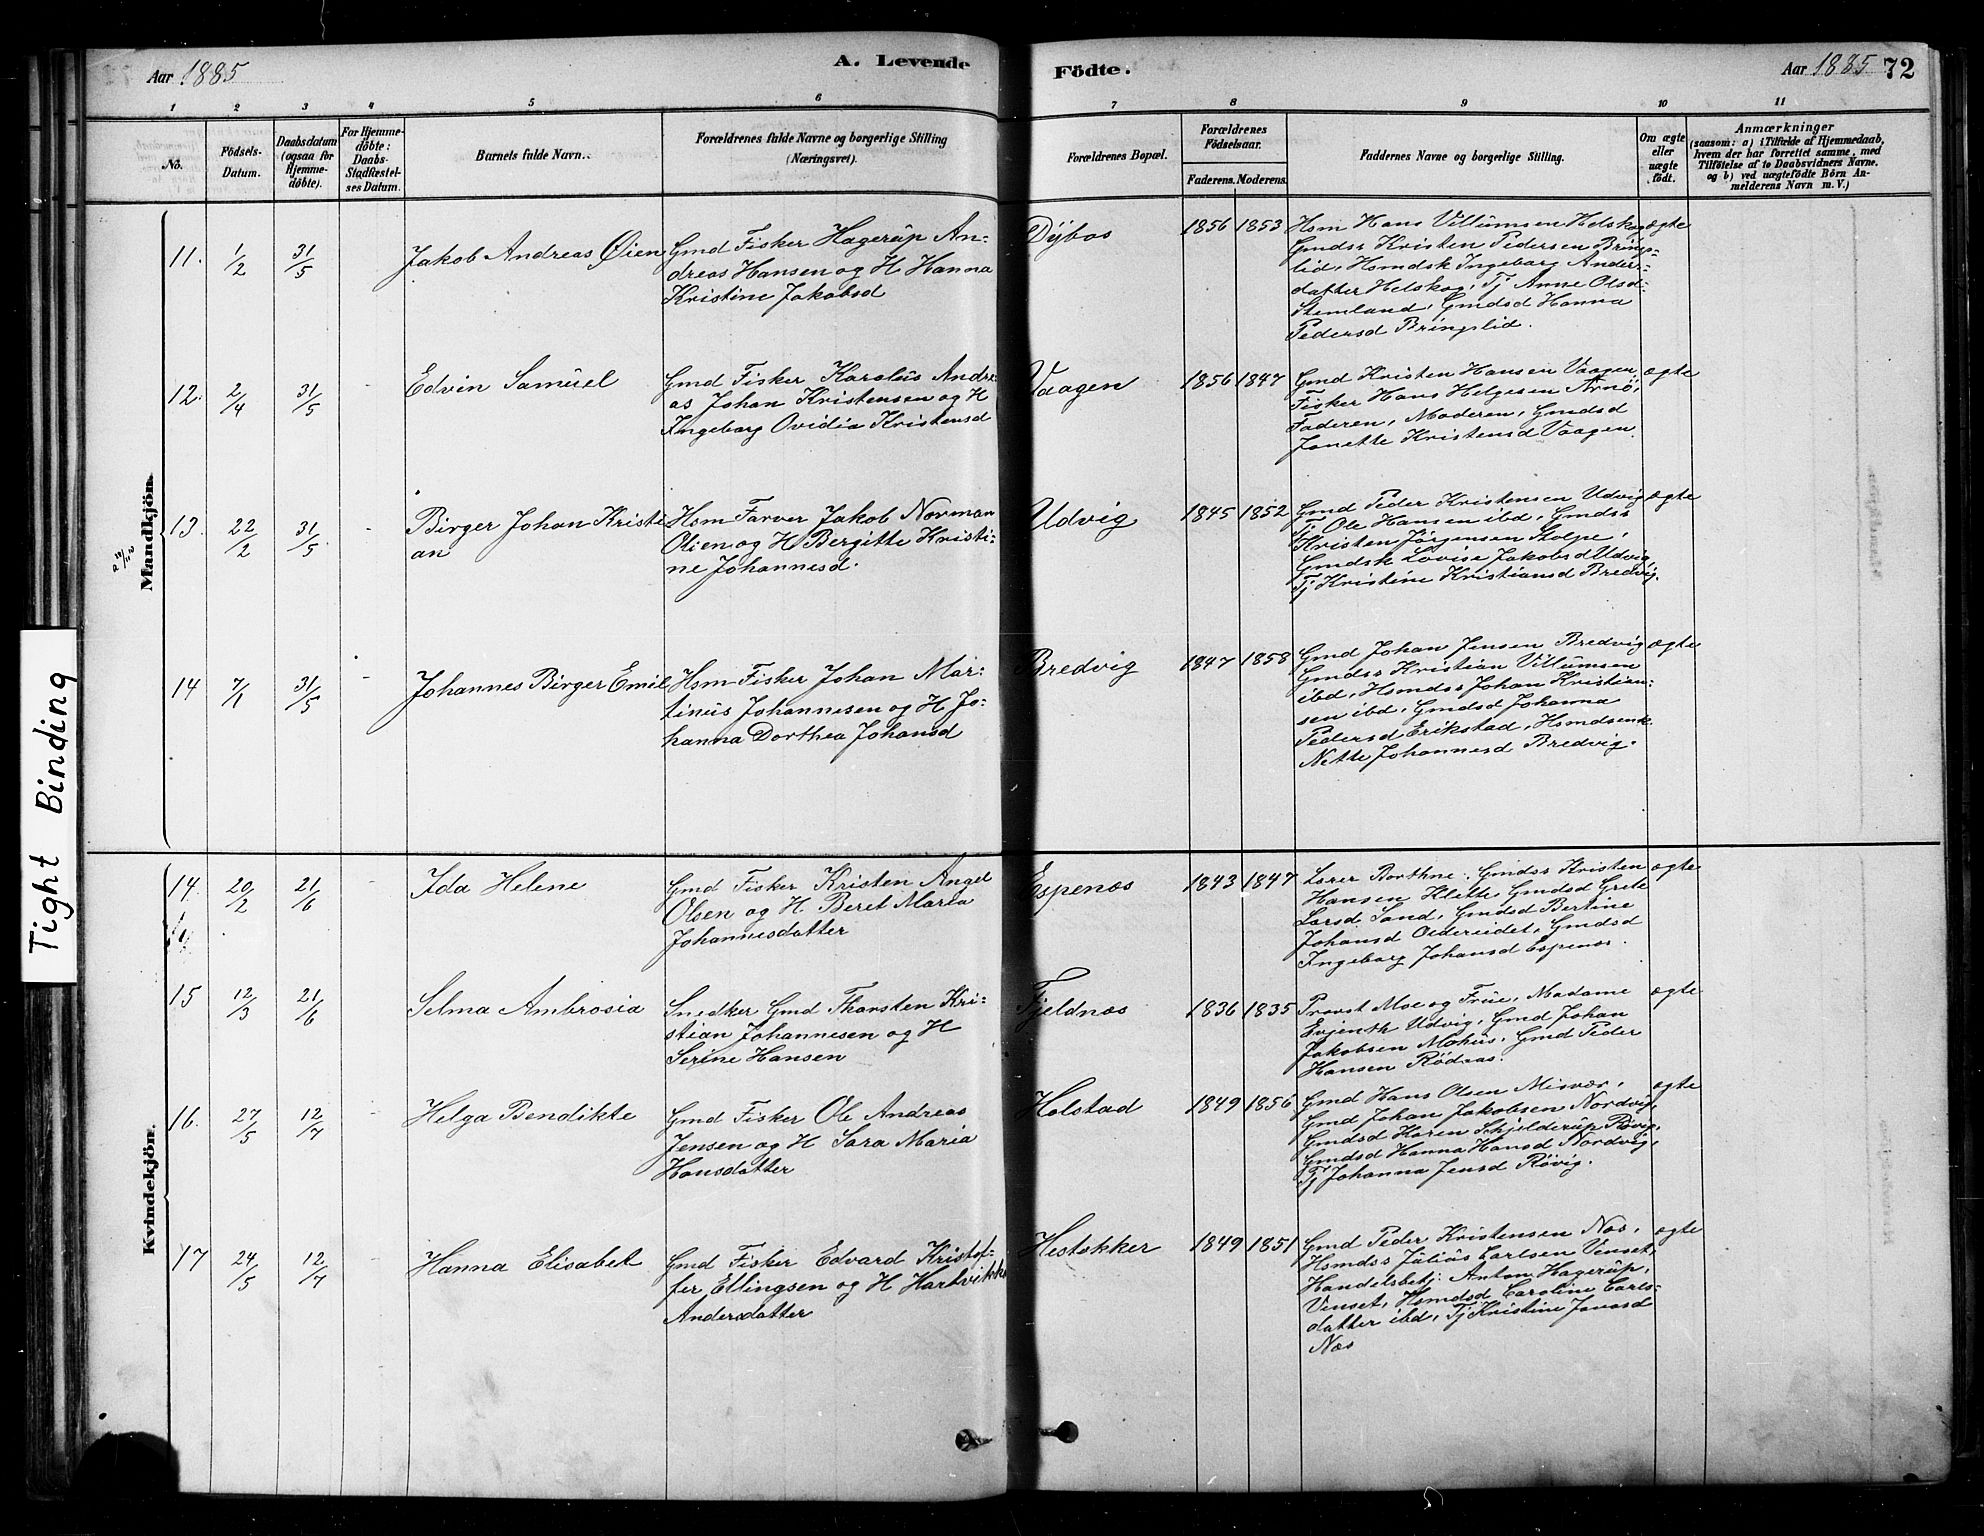 Aar 1885
A. Levende
Födte.
Aar 1885 72
1 2 3 4 5 6 7 8 9 10 11
No.
Födsels-
Datum.
Daabsdatum
(ogsaa for
Hjemme-
döbte).
For Hjemme-
döbte:
Daabs-
Stadfæstel-
ses Datum.
Barnets fulde Navn.
Forældrenes fulde Navne og borgerlige Stilling
(Næringsvei).
Forældrenes Bopæl.
Forældrenes
Födselsaar.
Faderens. Moderens.
Faddernes Navne og borgerlige Stilling.
Om ægte
eller
uægte
födt.
Anmærkninger
(saasom: a) i Tilfælde af Hjemmedaab,
hvem der har forrettet samme, med
Tilföielse af to Daabsvidners Navne.
og b) ved uægtefödte Börn An-
melderens Navn m. V.)
Mandkjön.
11. 1/2 31/5
Jakob Andreas Øien
Gmd Fisker Hagerup An-
dreas Hansen og H Hanna
Kristine Jakobsd
Dybos
1856 1853
Hsm Hans Villumsen Helskog
Gmdss Kristen Pedersen Brings-
lid, Hsmdsk Ingeborg Anders-
datter Helskog, Tj Anne Olsd
Stemland, Gmdsd Hanna
Pedersd Bringslid.
ægte
12. 2/4 31/5 -
Edvin Samuel
Gmd Fisker Karolus Andre-
as Johan Kristensen og H
Ingeborg Ovidia Kristensd
Vaagen
1856 1847
Gmd Kristen Hansen Vaagen,
Fisker Hans Helgesen Arnø,
Faderen, Moderen, Gmdsd
Janette Kristensd Vaagen.
ægte
13. 22/2 31/5 -
Birger Johan Kristi
an
Hsm Farver Jakob Norman
Olsen og H Bergitte Kristi-
ne Johannesd.
Udvig
1845 1852
Gmd Peder Kristensen Udvig
Tj Ole Hansen ibd, Gmdss
Kristen Jørgensen Stolpe,
Gmdsk Lovise Jakobsd Udvig,
Tj Kristine Kristiansd Bredvig.
ægte
14 7/1 31/5 -
Johannes Birger Emil
Hsm Fisker Johan Mar-
tinus Johannesen og H Jo-
hanna Dorthea Johansd
Bredvig
1847 1858
Gmd Johan Jensen Bredvig
Gmdss Kristian Villumsen
ibd, Hsmdss Johan Kristian-
sen ibd, Gmdsd Johanna
Pedersd Erikstad, Hsmdsenk.
Nette Johannesd Bredvig.
ægte
Kvindekjön.
14. 20/2 21/6 -
Ida Helene
Gmd Fisker Kristen Angel
Olsen og H. Beret Maria
Johannesdatter
Espenæs
1843 1847
Lærer Borthne, Gmdss Kristen
Hansen Klette, Gmdsd Grete
Larsd Sand, Gmdsd Bertine
Johansd Oldereidet, Gmdsd
Ingeborg Johansd Espenæs.
ægte
15 12/3 21/6 -
Selma Ambrosia
Snedker Gmd Thorsten Kri-
stian Johannesen og H
Serine Hansen
Fjeldnæs
1836 1835
Provst Moe og Frue, Madame
Evjenth Udvig, Gmd Johan
Jakobsen Mohus, Gmd Peder
Hansen Rødaas.
ægte
16. 27/5 12/7 -
Helga Bendikte
Gmd Fisker Ole Andreas
Jensen og H Sara Maria
Hansdatter
Holstad
1849 1856
Gmd Hans Olsen Misvær,
Gmd Johan Jakobsen Nordvig,
Gmdsd Karen Schjelderup Røvig,
Gmdsd Hanna Hansd Nordvig,
Tj Johanna Jensd Røvig.
ægte
17 24/5 12/7 -
Hanna Elisabet
Gmd Fisker Edvard Kristof-
fer Ellingsen og H Hartvikka
Andersdatter
Hestokker
1849 1851
Gmd Peder Kristensen Næs,
Hsmdss Julius Carlsen Venset,
Handelsbetj. Anton Hagerup,
Venset, Hsmdsd Caroline Carls-
datter ibd, Tj Kristine Jonasd
Næs
ægte
Tight Binding